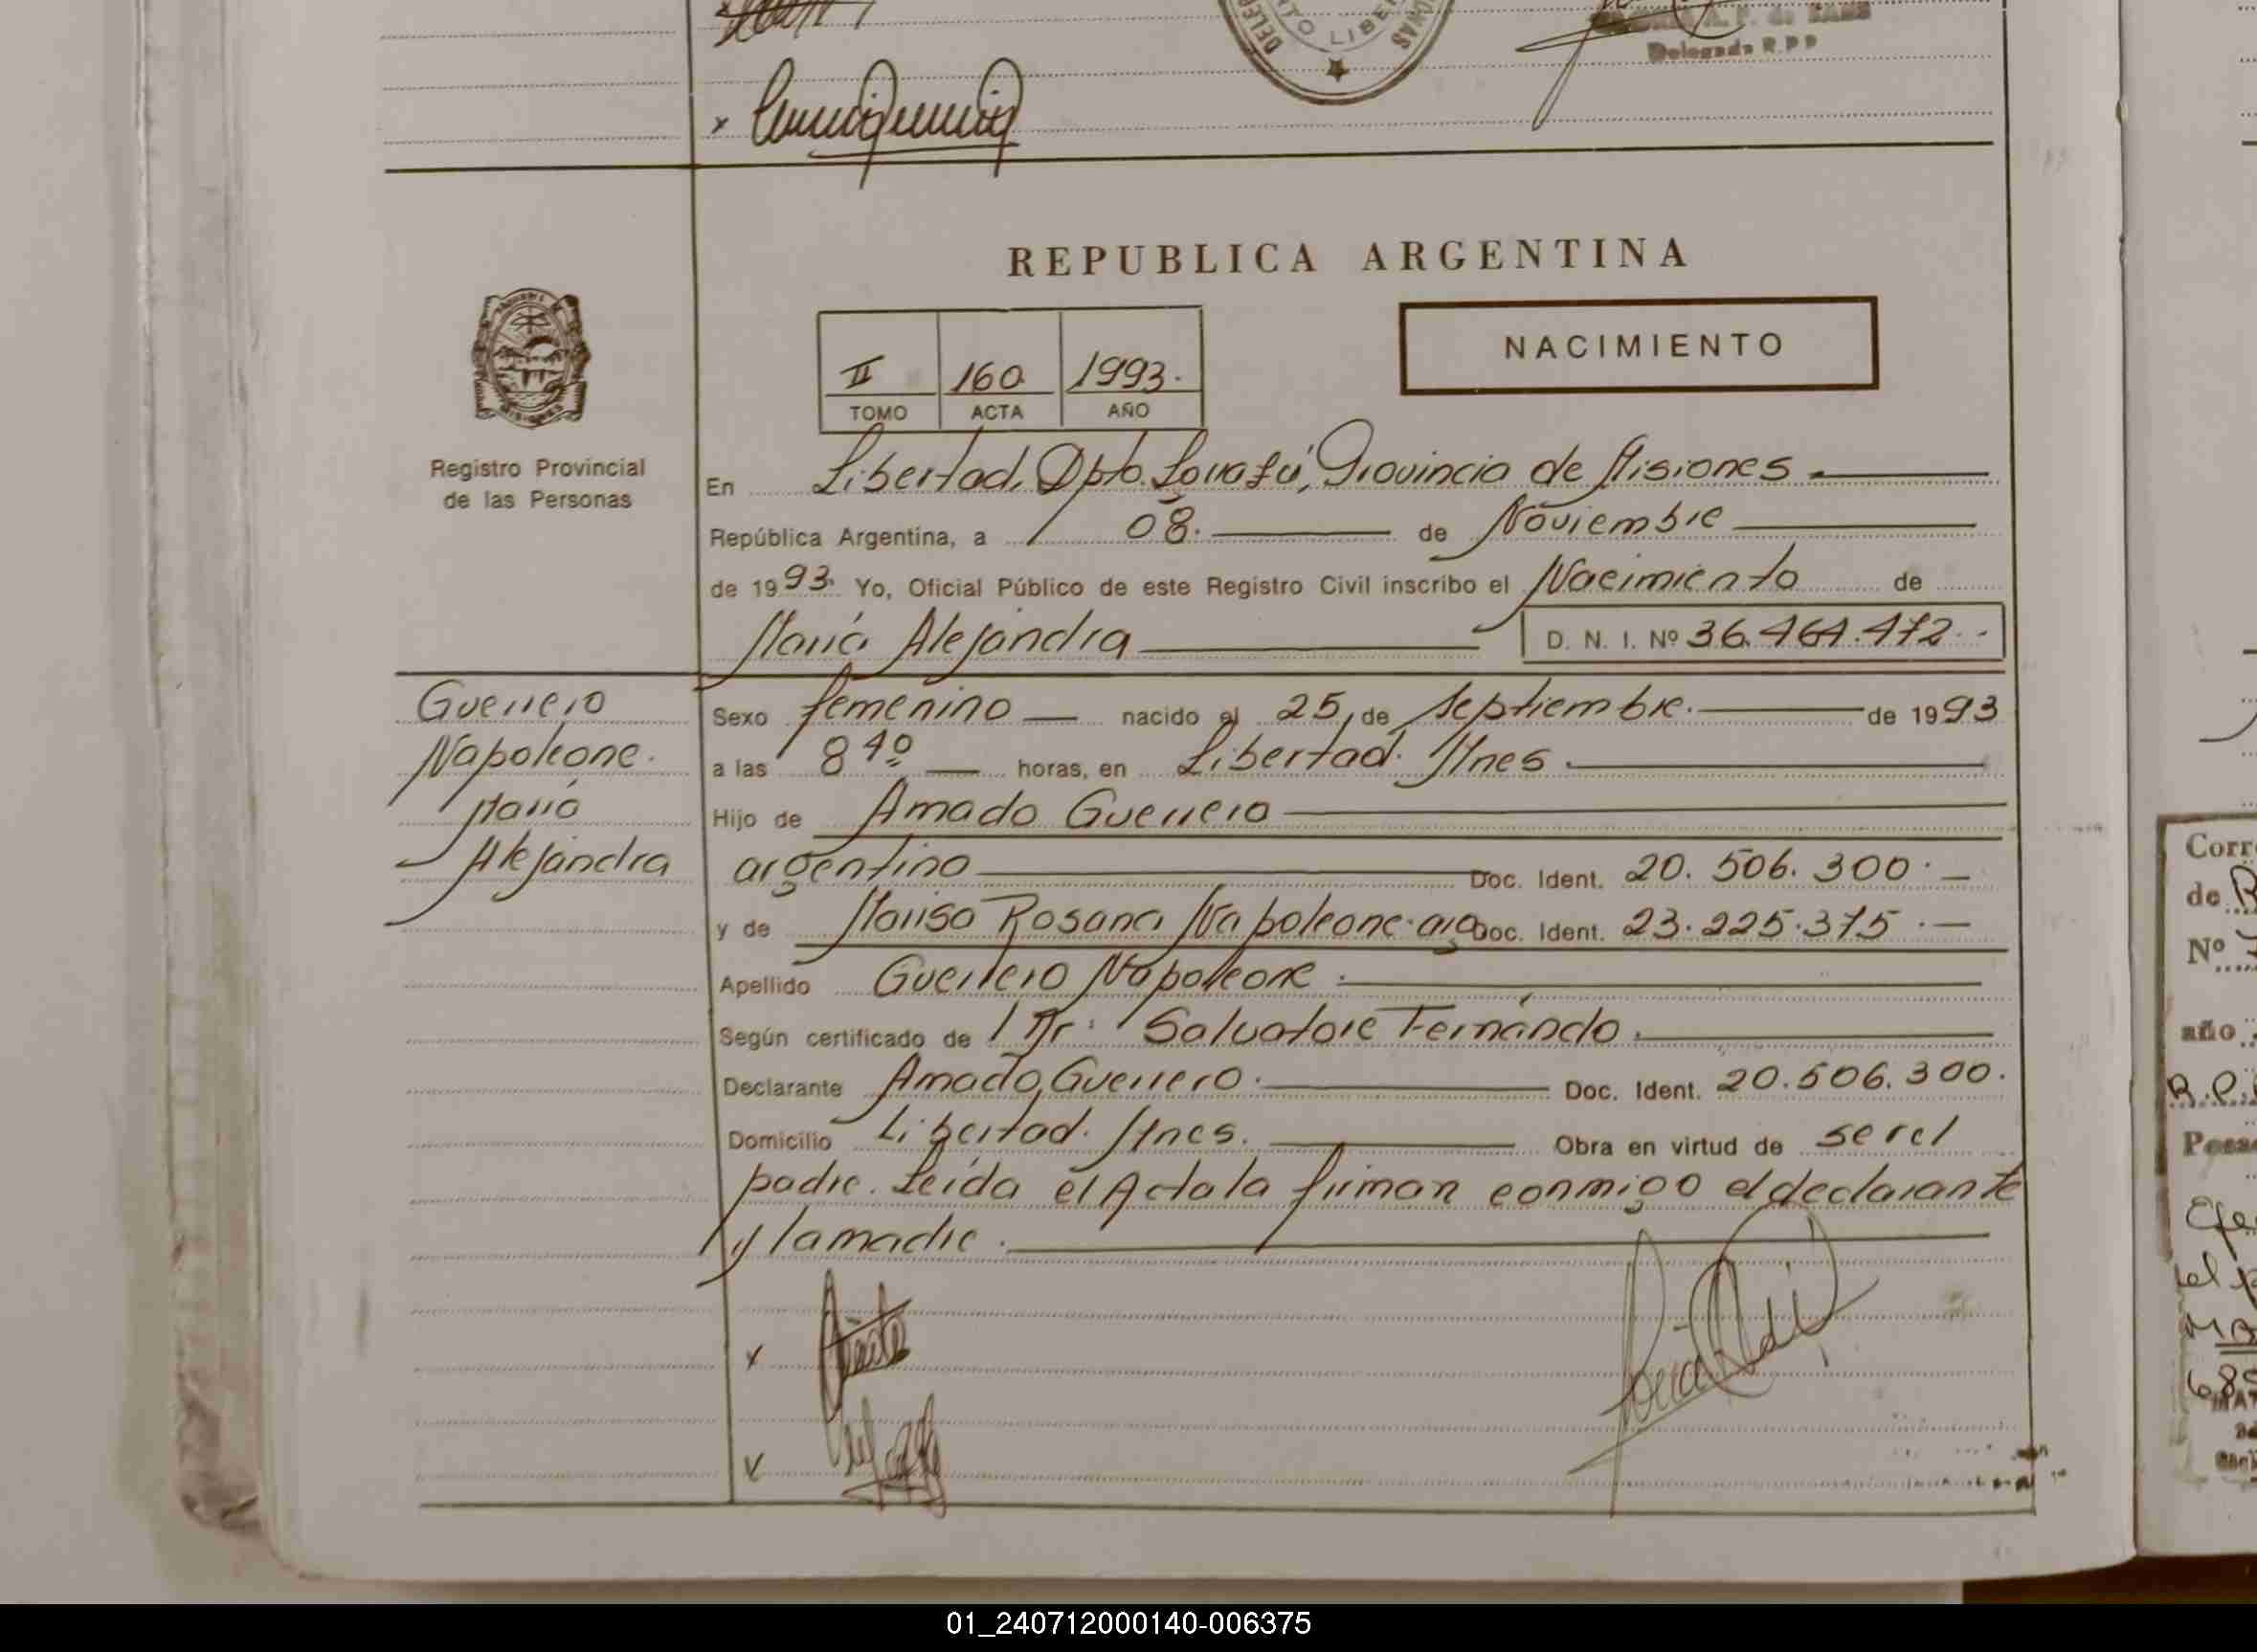 DELE
NTO LIBE
NAS
A. F. de SANS
Delegada R.P.P
REPUBLICA ARGENTINA
NACIMIENTO
II 160 1993.
TOMO ACTA AÑO
Registro Provincial
de las Personas
En Libertad, Dpto. Iguazú, Provincia de Misiones.
República Argentina, a 08. de Noviembre
de 1993. Yo, Oficial Público de este Registro Civil inscribo el Nacimiento de
María Alejandra D. N. I. Nº 36.461.472.-
Guerrero
Napoleone.
María
Alejandra
Sexo femenino nacido el 25, de septiembre. de 1993
a las 8 40 horas, en Libertad. Mnes.
Hijo de Amado Guerrero
argentino Doc. Ident. 20.506.300.-
y de Marisa Rosana Napoleone. arg. Doc. Ident. 23.225.375.-
Apellido Guerrero Napoleone.
Según certificado de Dr. Salvatore Fernándo.
Declarante Amado Guerrero. Doc. Ident. 20.506.300.
Domicilio Libertad. Mnes. Obra en virtud de ser el
padre. Leída el Acta la firman conmigo el declarante
y la madre.
x
Corr
de R
Nº
año
R.P.
Posa
el p
01_240712000140-006375